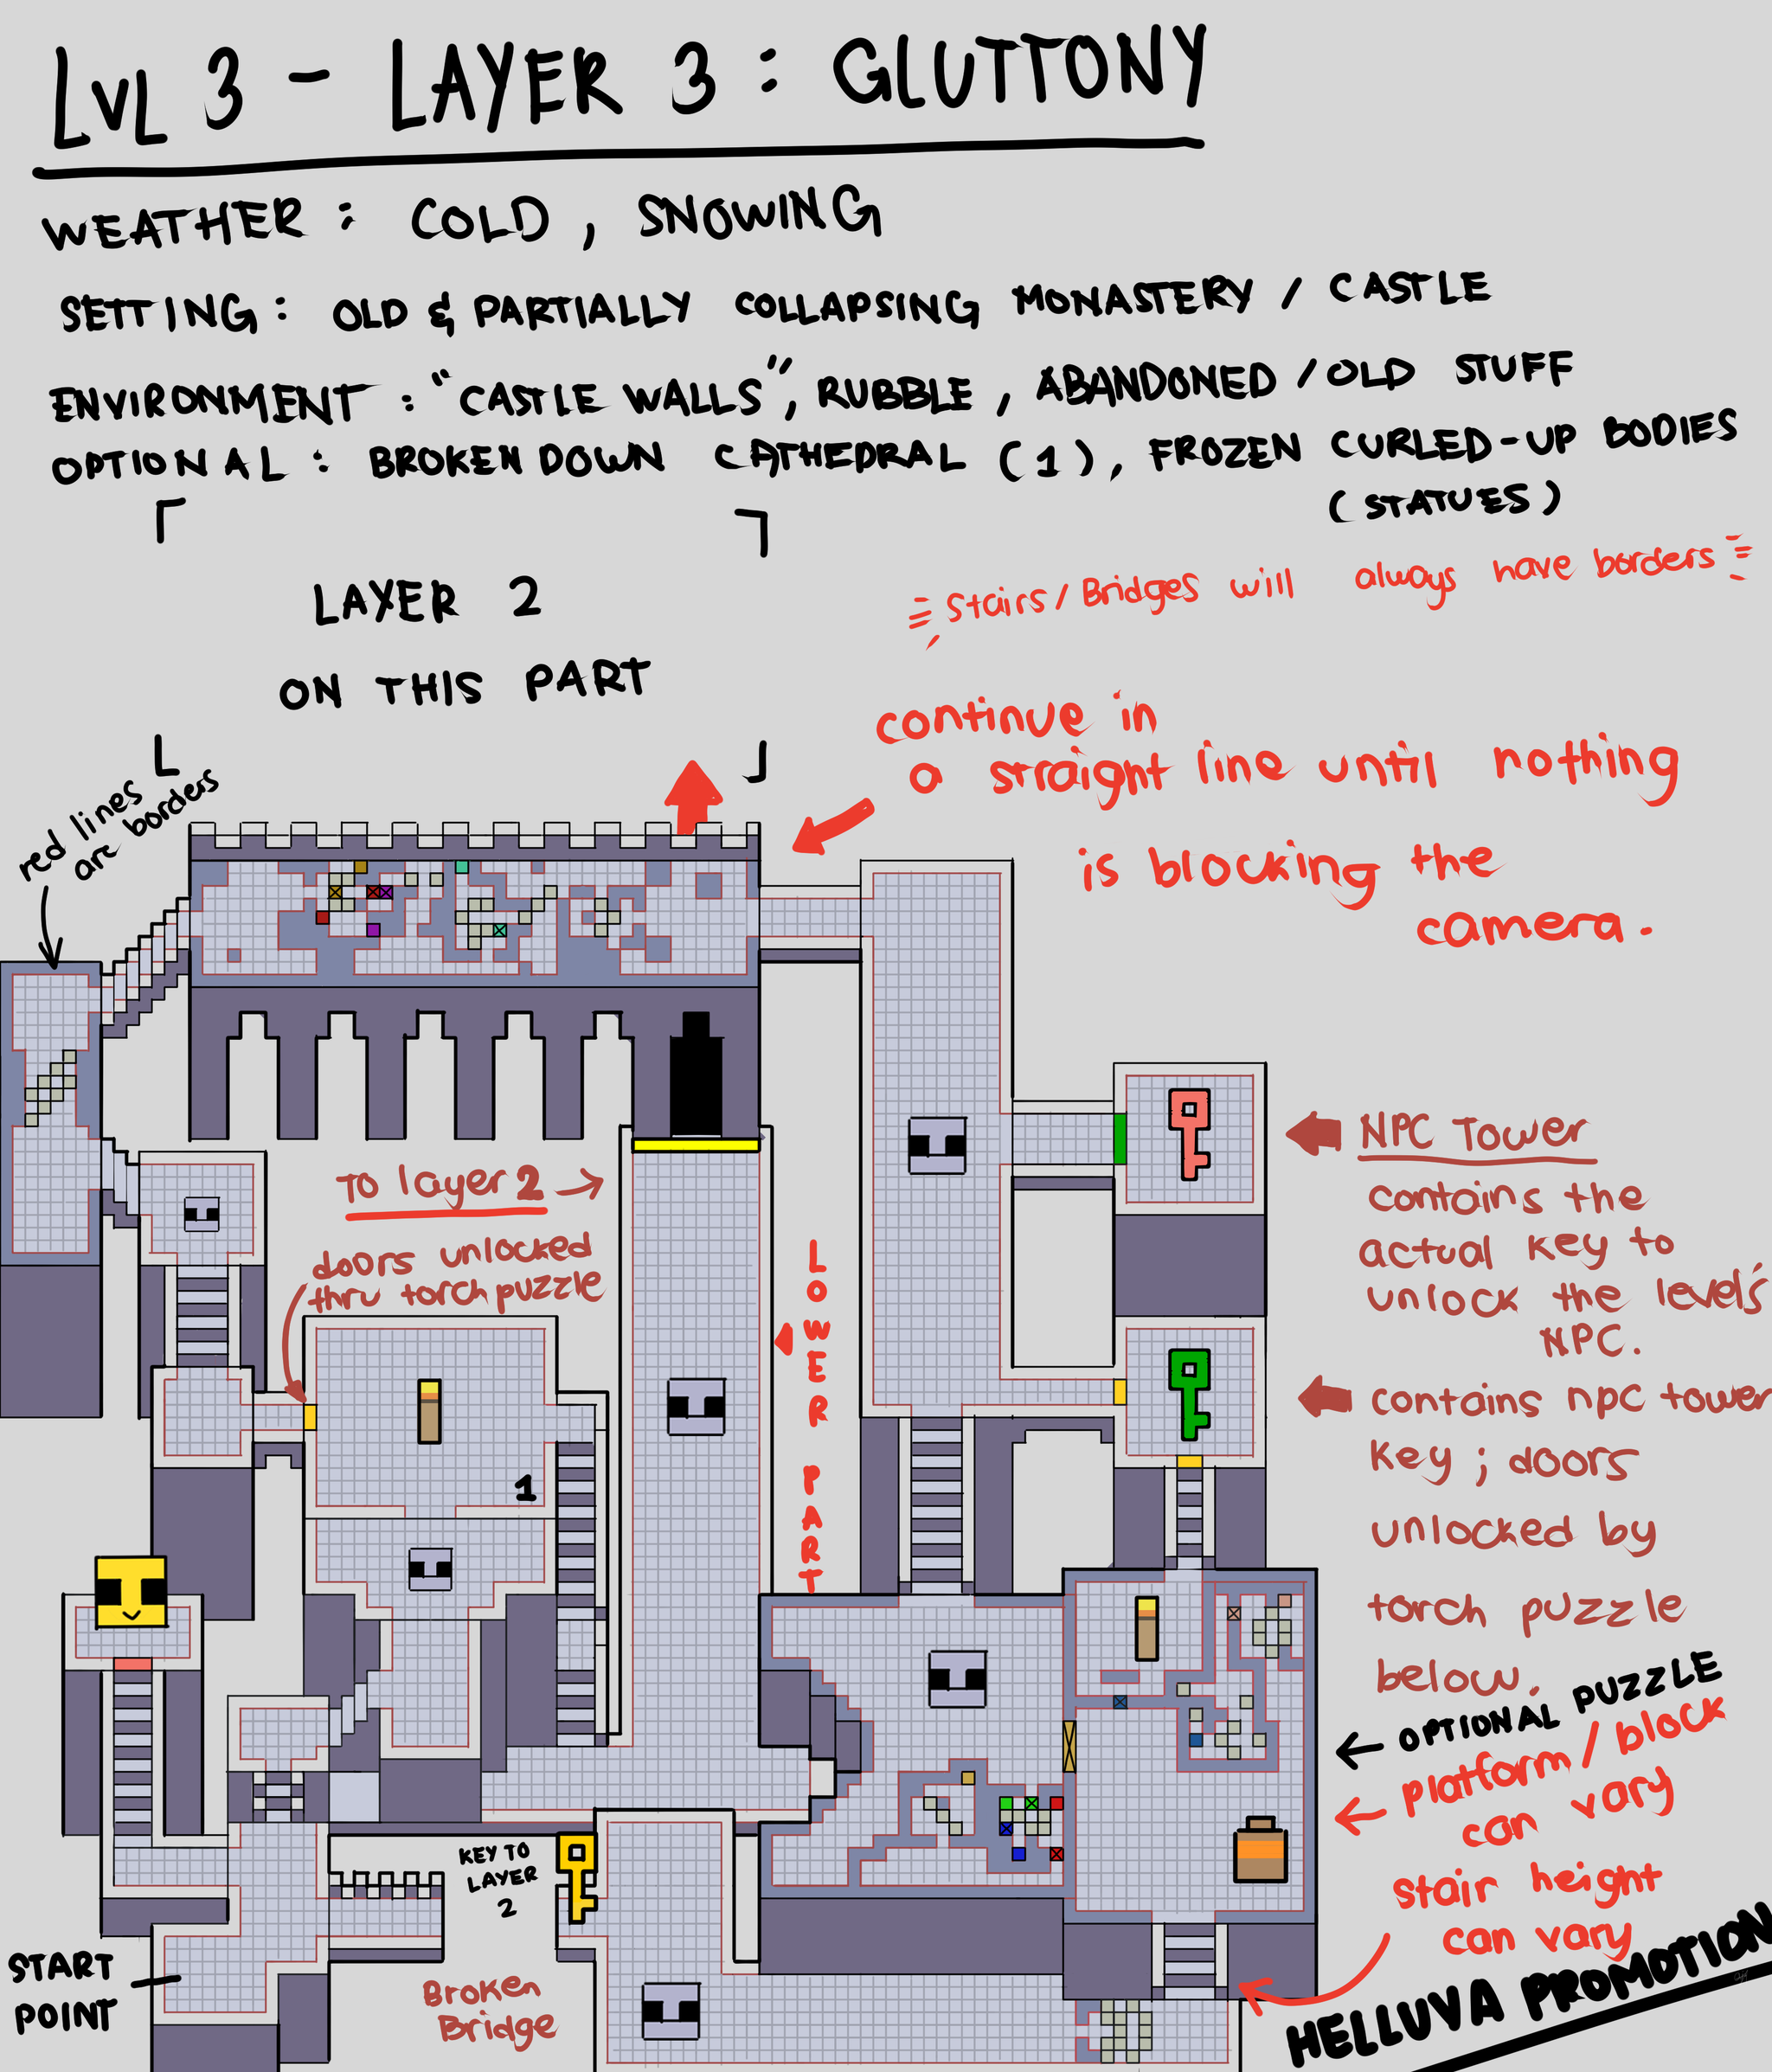 LVL 3 - LAYER 3 : GLUTTONY
WEATHER : COLD , SNOWING
SETTING : OLD & PARTIALLY COLLAPSING MONASTERY / CASTLE
ENVIRONMENT : "CASTLE WALLS", RUBBLE , ABANDONED / OLD STUFF
OPTIONAL : BROKEN DOWN CATHEDRAL (1), FROZEN CURLED-UP BODIES
(STATUES)
LAYER 2
ON THIS PART
Stairs / Bridges will always have borders
continue in
a straight line until nothing
is blocking the
camera.
red lines
are borders
To layer 2
doors unlocked
thru torch puzzle
LOWER PART
NPC Tower
contains the
actual key to
unlock the level's
NPC.
contains npc tower
key ; doors
unlocked by
torch puzzle
below.
1
OPTIONAL PUZZLE
platform / block
can vary
stair height
can vary
KEY TO
LAYER
2
START
POINT
Broken
Bridge
HELLUVA PROMOTION